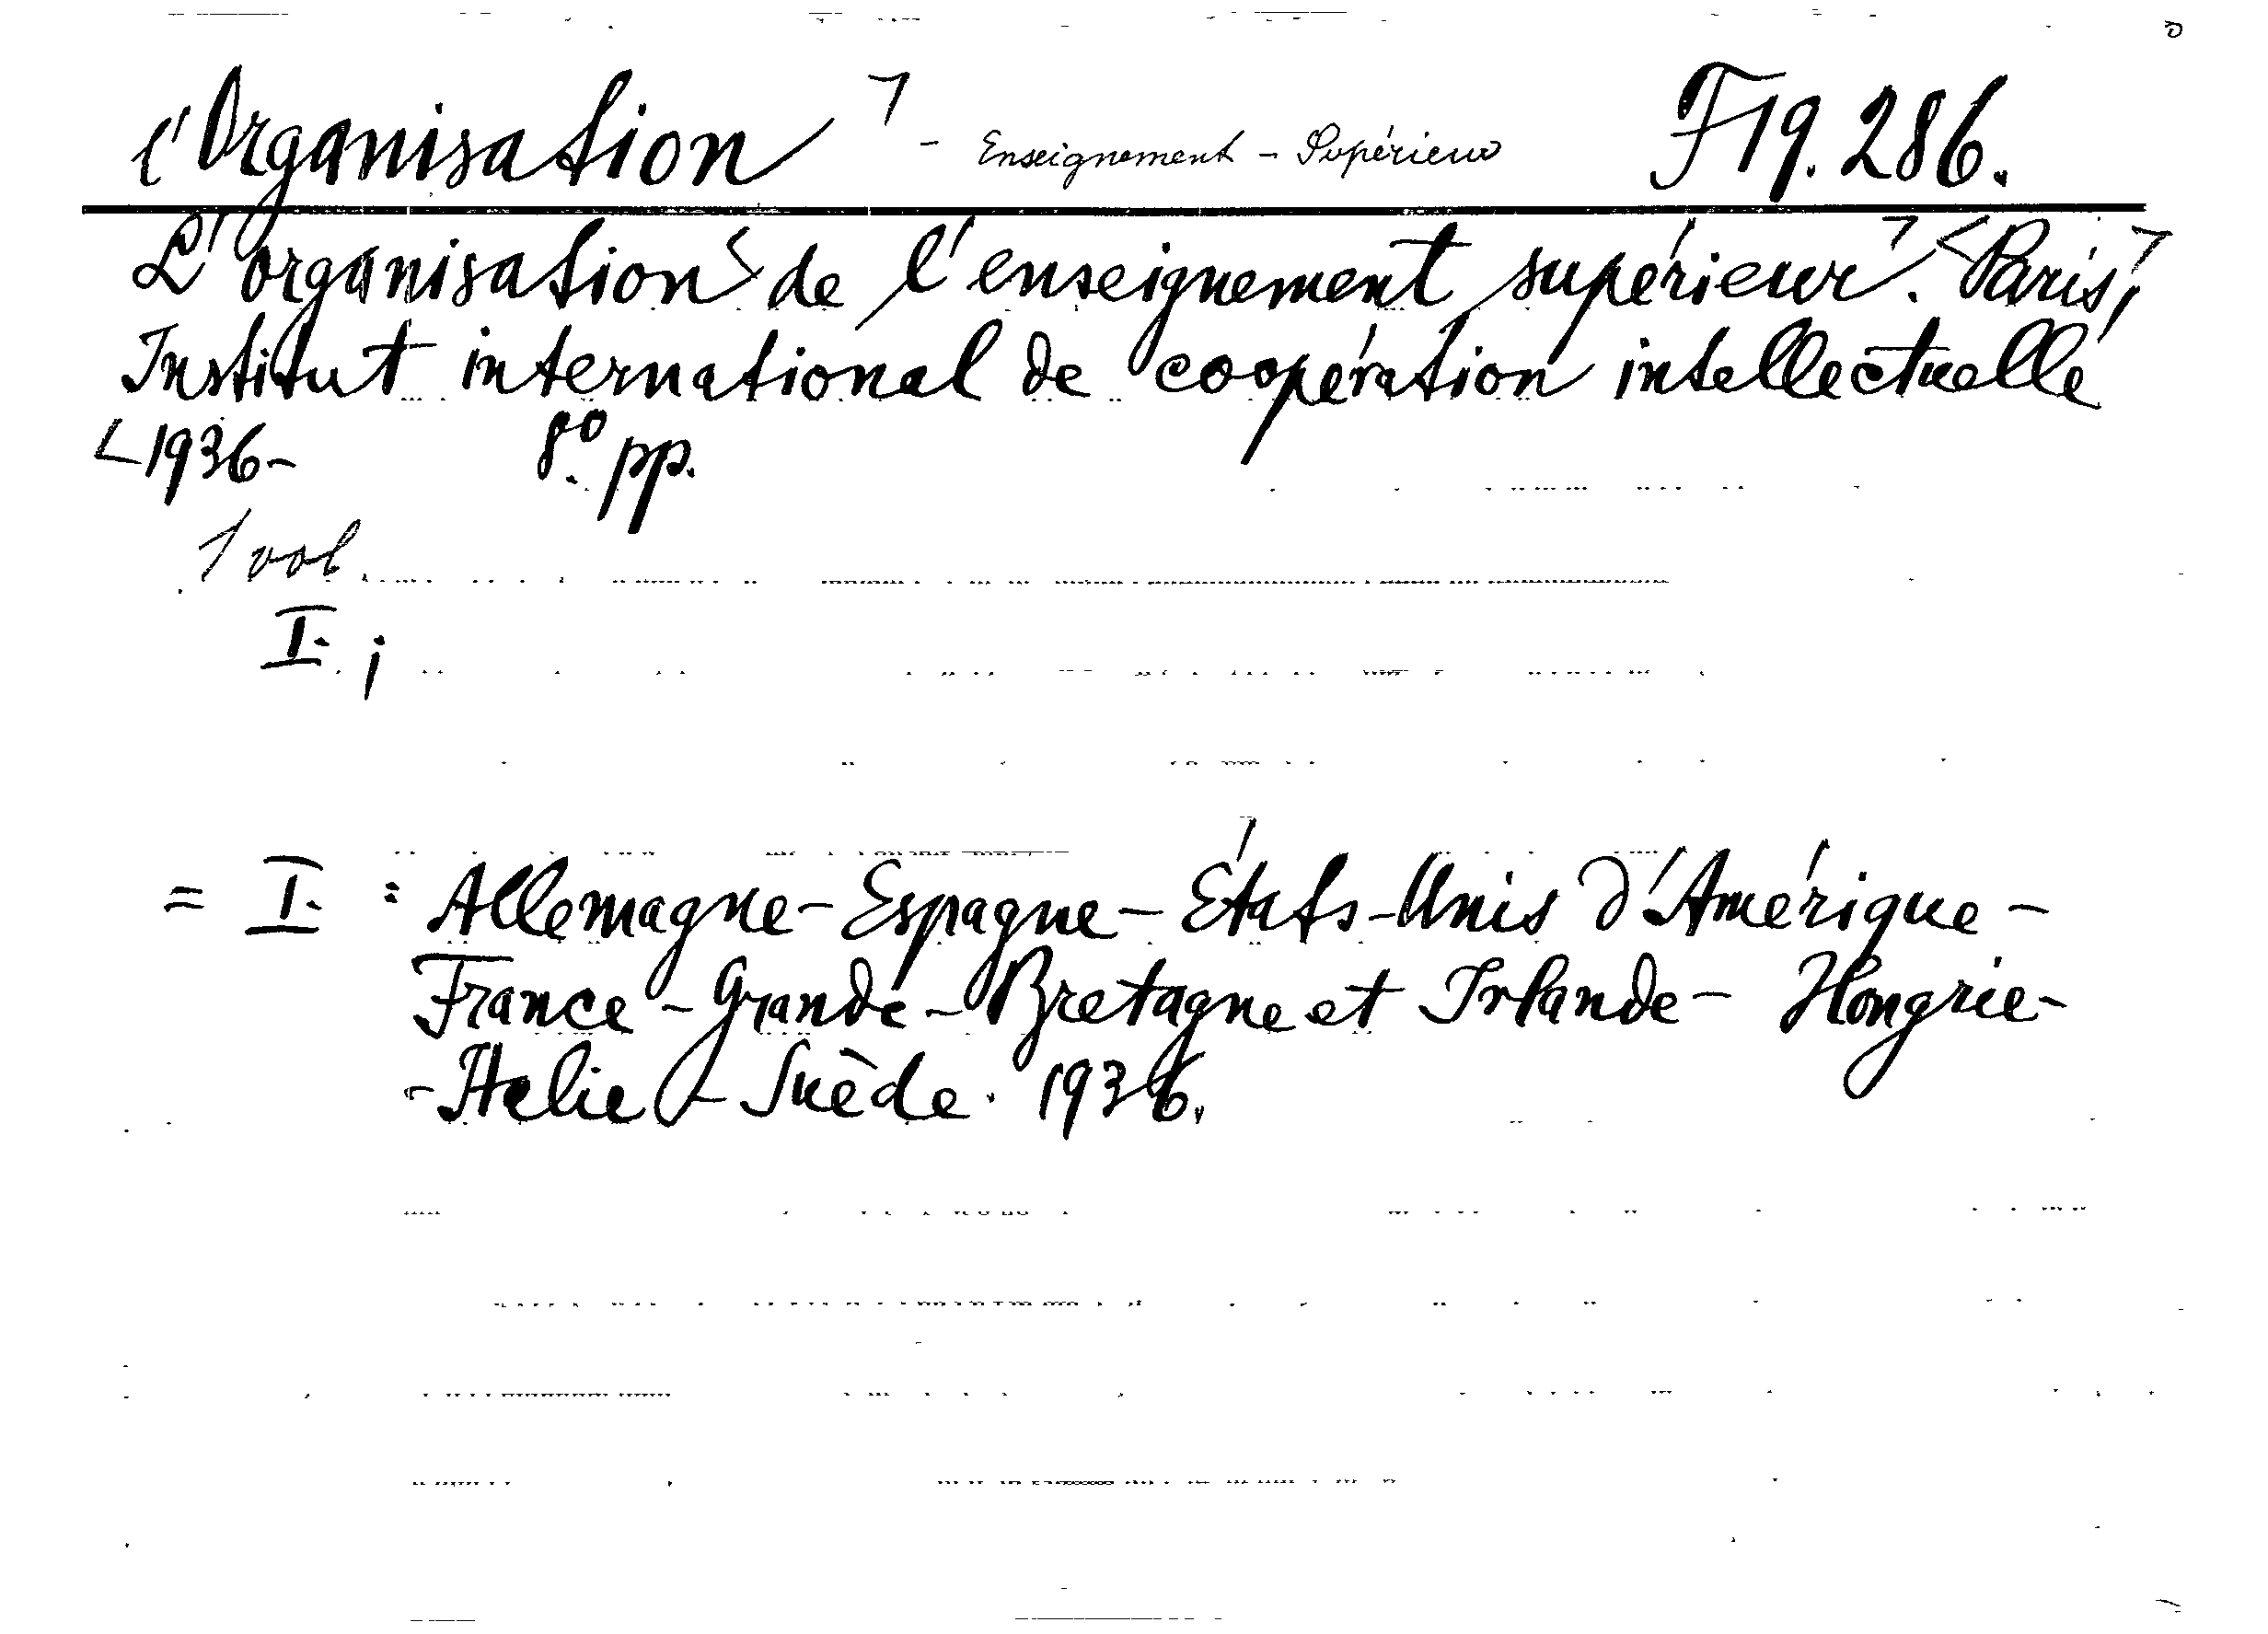 l'Organisation ¬ - Enseignement - Supérieur F19.286.
L'organisation de l'enseignement supérieur. Paris,
Institut international de coopération intellectuelle
1936- 8º. pp.
1 vol.
I. ;
= I. : Allemagne - Espagne - États-Unis d'Amérique -
France - Grande-Bretagne et Irlande - Hongrie -
- Italie - Suède. 1936.